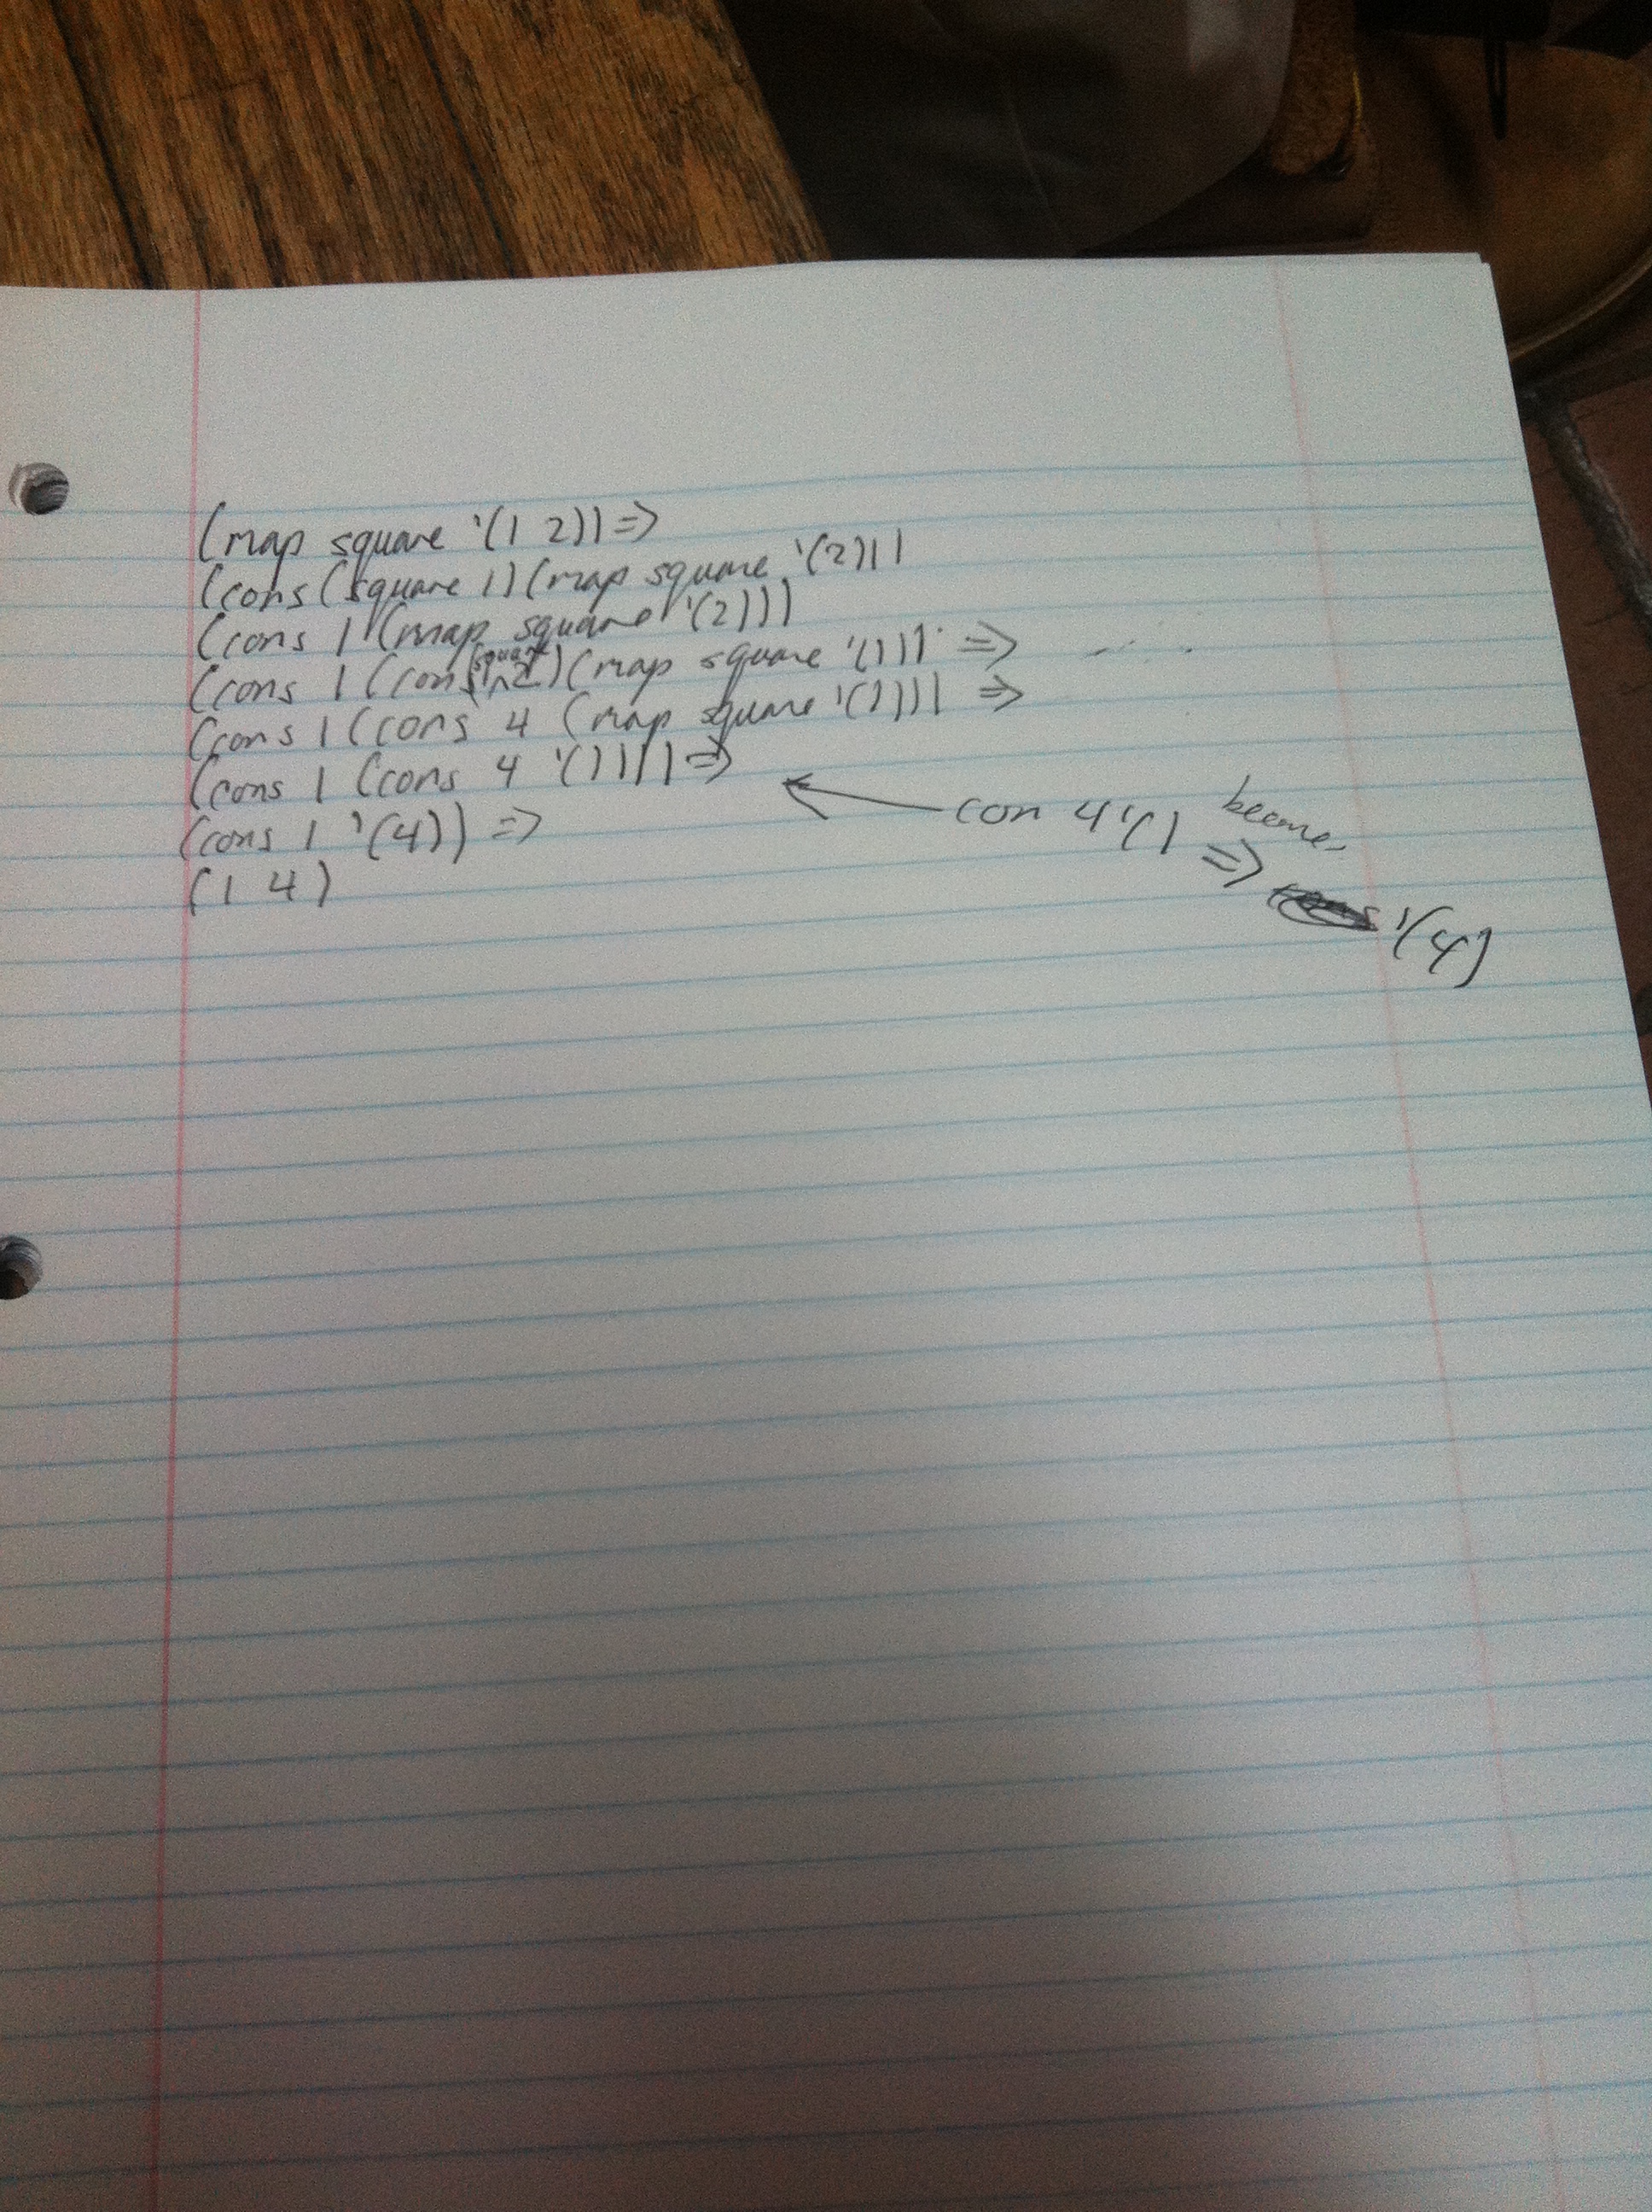 (map square '(1 2)) =>
(cons (square 1) (map square '(2)))
(cons 1 (map square '(2)))
(cons 1 (cons (square 2) (map square '()))) =>
(cons 1 (cons 4 (map square '()))) =>
(cons 1 (cons 4 '())) =>
(cons 1 '(4)) =>
(1 4)
con 4 '() becomes
=> '(4)